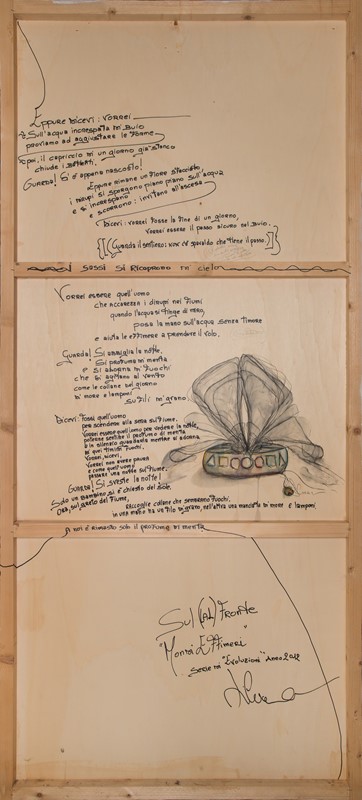 Eppure dicevi: vorrei
Sull'acqua increspata di buio
proviamo ad aggiustare le forme
poi, il capriolo di un giorno già stanco
chiude i battenti.
Guarda! Si è appena nascosto!
Eppure rimane un fiore staccato,
i dirupi si sporgono piano piano sull'acqua
e si increspano
e scorrono: invitano all'ascesa
Dicevi: vorrei fosse la fine di un giorno,
vorrei essere il passo sicuro nel buio.
[[(Guarda il sentiero: non c'è spiraldo che tiene il passo.)]]
I sassi si ricoprono di cielo
Vorrei essere quell'uomo
che accarezza i dirupi nei fiumi
quando l'acqua si tinge di nero,
posa la mano sull'acqua senza timore
e aiuta le effimere a prendere il volo.
Guarda! Si ammalia la notte,
Si profuma di menta
e si adorna di fuochi
che si agitano al vento
come le collane nel giorno
di more e lamponi
su fili di grano.
Dicevi: fossi quell'uomo
per scendere alla sera sul fiume.
Vorrei essere quell'uomo per vedere la notte,
potrene sentire il profumo di menta
e in silenzio guardarla mentre si adorna
di quei timidi fuochi.
Vorrei, dicevi,
Vorrei non avere paura
e come quell'uomo
passare una notte sul fiume.
Guarda! Si sveste la notte!
Solo un bambino si è chiesto del sole.
Ora, sul greto del fiume,
raccoglie collane che sembrano fuochi,
in una mano ha un filo di grano, nell'altra una manciata di more e lamponi
A noi è rimasto solo il profumo di menta
Sul (al) fronte
"Mondi Effimeri"
Serie di "Evoluzioni" Anno 2012